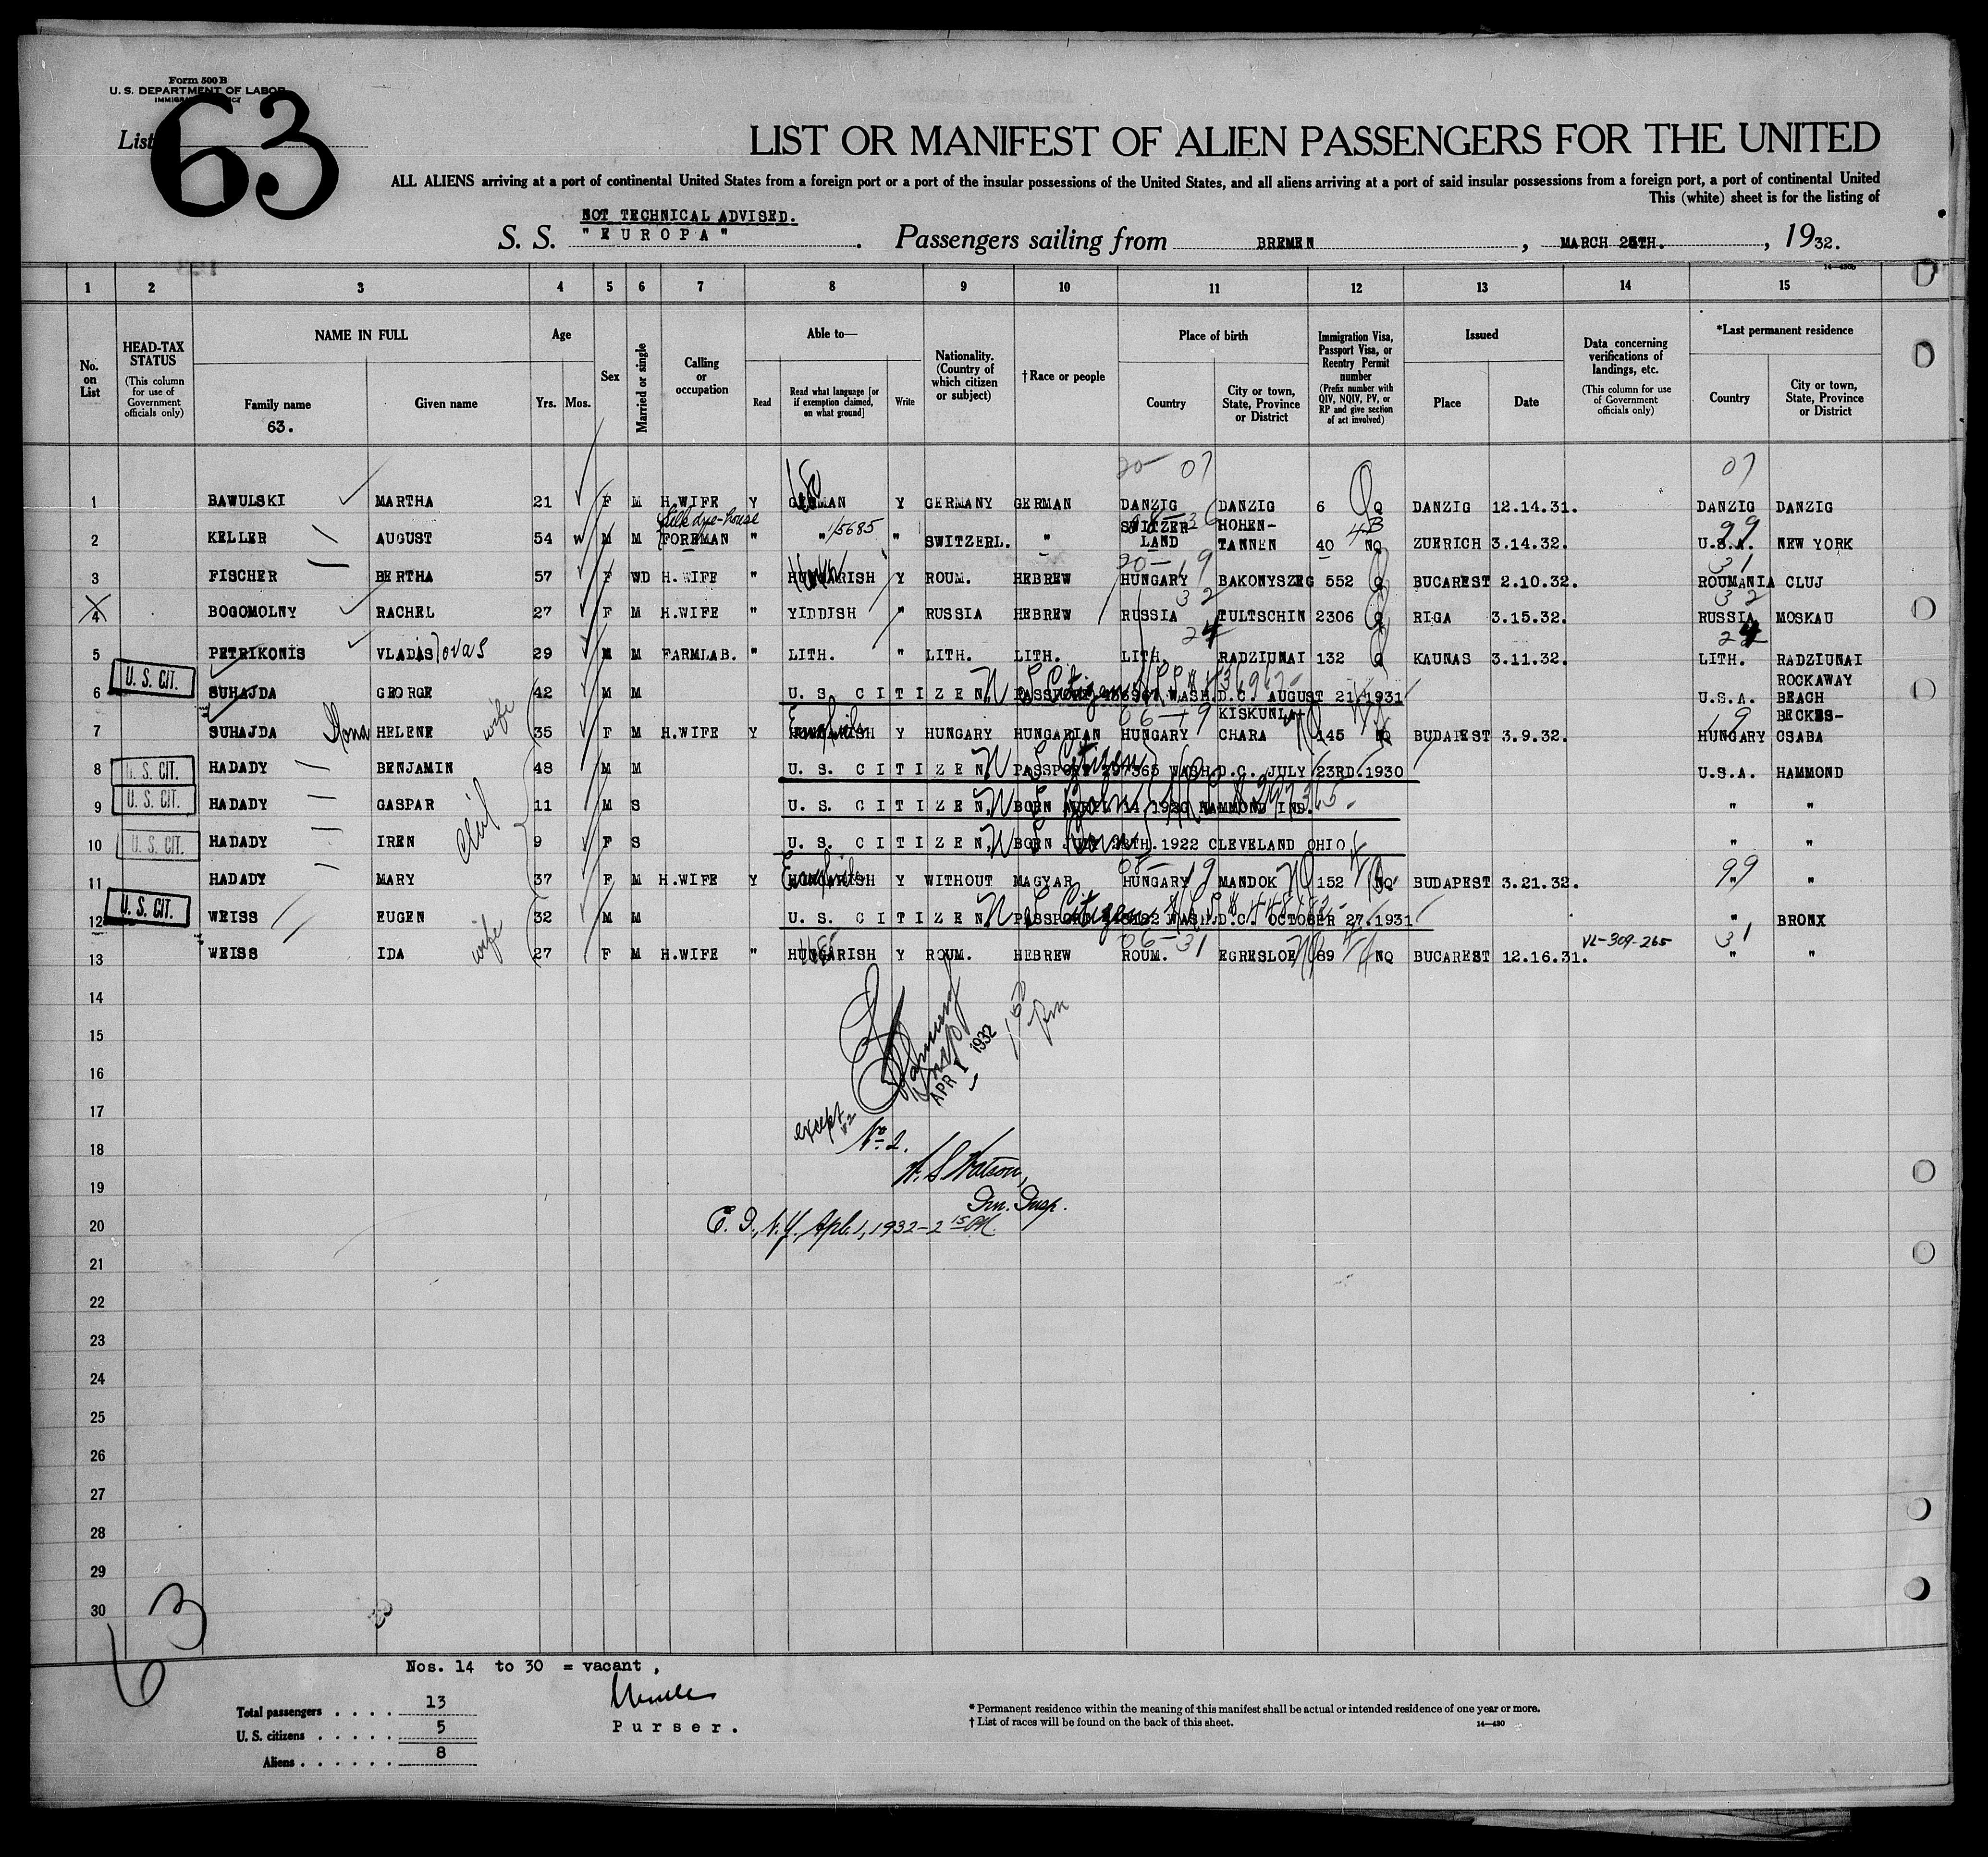 Form 500 B
U. S. DEPARTMENT OF LABOR
List 63
LIST OR MANIFEST OF ALIEN PASSENGERS FOR THE UNITED
ALL ALIENS arriving at a port of continental United States from a foreign port or a port of the insular possessions of the United States, and all aliens arriving at a port of said insular possessions from a foreign port, a port of continental United
This (white) sheet is for the listing of
NOT TECHNICAL ADVISED.
S. S. "EUROPA". Passengers sailing from BREMEN, MARCH TH., 1932.
14—430b
1 2 3 4 5 6 7 8 9 10 11 12 13 14 15
No. on List
HEAD-TAX STATUS (This column for use of Government officials only)
NAME IN FULL
Family name 63.
Given name
Age
Yrs. Mos.
Sex
Married or single
Calling or occupation
Able to—
Read
Read what language [or if exemption claimed, on what ground]
Write
Nationality. (Country of which citizen or subject)
†Race or people
Place of birth
Country
City or town, State, Province or District
Immigration Visa, Passport Visa, or Reentry Permit number (Prefix number with QIV, NQIV, PV, or RP and give section of act involved)
Issued
Place
Date
Data concerning verifications of landings, etc. (This column for use of Government officials only)
*Last permanent residence
Country
City or town, State, Province or District
20 07 07
1 BAWULSKI MARTHA 21 F M H.WIFE Y GERMAN Y GERMANY GERMAN DANZIG DANZIG 6 Q DANZIG 12.14.31. DANZIG DANZIG
Silk dye-house
2 KELLER AUGUST 54 M M FOREMAN " " 15685 " SWITZERL. " SWITZER LAND HOHEN- TANNEN 40 NQ ZUERICH 3.14.32. 99 U.S.A. NEW YORK
20—19 31
3 FISCHER BERTHA 57 F WD H.WIFE " HUNGARISH Y ROUM. HEBREW HUNGARY BAKONYSZEG 552 Q BUCAREST 2.10.32. ROUMANIA CLUJ
32 32
4 BOGOMOLNY RACHEL 27 F M H.WIFE " YIDDISH " RUSSIA HEBREW RUSSIA TULTSCHIN 2306 Q RIGA 3.15.32. RUSSIA MOSKAU
24 24
5 PETRIKONIS VLADIS ovas 29 M M FARMLAB. " LITH. " LITH. LITH. LITH. RADZIUNAI 132 Q KAUNAS 3.11.32. LITH. RADZIUNAI
U. S. CIT.
6 SUHAJDA GEORGE 42 M M U. S. CITIZEN, PASSPORT 436967 WASH.D.C. AUGUST 21,1931 U.S.A. ROCKAWAY BEACH
06—19 19
7 SUHAJDA Ilona HELENE wife 35 F M H.WIFE Y HUNGARISH Y HUNGARY HUNGARIAN HUNGARY KISKUNLA- CHARA 145 NQ BUDAPEST 3.9.32. HUNGARY BECKES- CSABA
U. S. CIT.
8 HADADY BENJAMIN 48 M M U. S. CITIZEN, PASSPORT 297365 WASH.D.C. JULY 23RD.1930 U.S.A. HAMMOND
U. S. CIT.
9 HADADY GASPAR 11 M S U. S. CITIZEN, BORN APRIL 14, 1920 HAMMOND IND. " "
U. S. CIT.
10 HADADY IREN 9 F S U. S. CITIZEN, BORN JULY TH.1922 CLEVELAND OHIO " "
19 99
11 HADADY MARY 37 F M H.WIFE Y HUNGARISH Y WITHOUT MAGYAR HUNGARY MANDOK 152 NQ BUDAPEST 3.21.32. "
U. S. CIT.
12 WEISS EUGEN 32 M M U. S. CITIZEN, PASSPORT WASH.D.C. OCTOBER 27.1931 " BRONX
06—31 VL-309-265 31
13 WEISS IDA wife 27 F M H.WIFE " HUNGARISH Y ROUM. HEBREW ROUM. EGRESLOE 89 NQ BUCAREST 12.16.31. " "
14
15
APR 1 1932
16
17
except
18
No 2.
W. S. Watson,
19
Im. Insp.
20 E. I., N.Y. Apl. 1, 1932—2 15 PM.
21
22
23
24
25
26
27
28
29
30
63
Nos. 14 to 30 = vacant,
Total passengers 13
U. S. citizens 5
Aliens 8
Purser.
* Permanent residence within the meaning of this manifest shall be actual or intended residence of one year or more.
† List of races will be found on the back of this sheet.
14—430